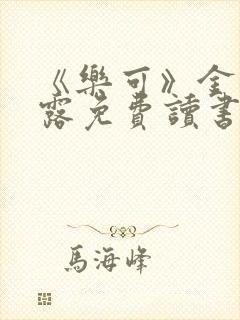 《樂可》全
露免費讀書
馬海峰